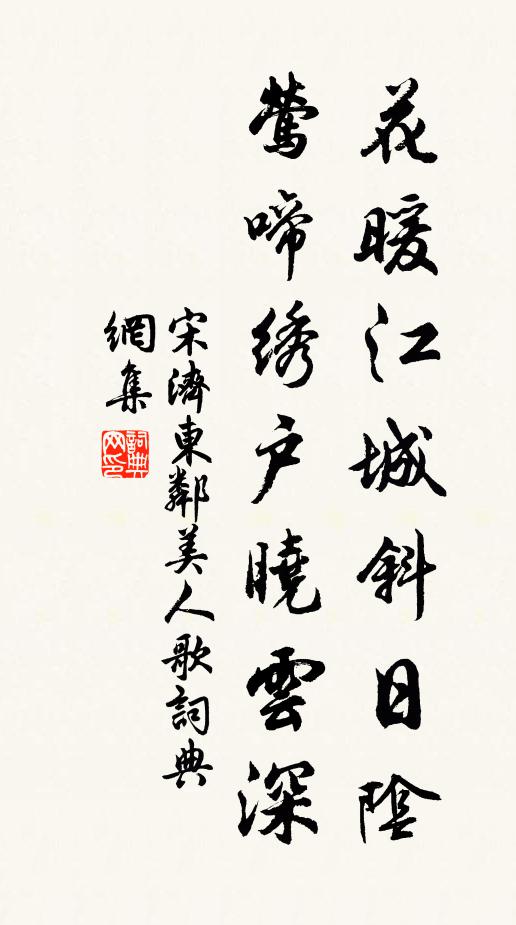 花暖江城斜日陰
鶯啼绣户曉雲深
宋濟東鄰美人歌詞典
網集
詞典网印